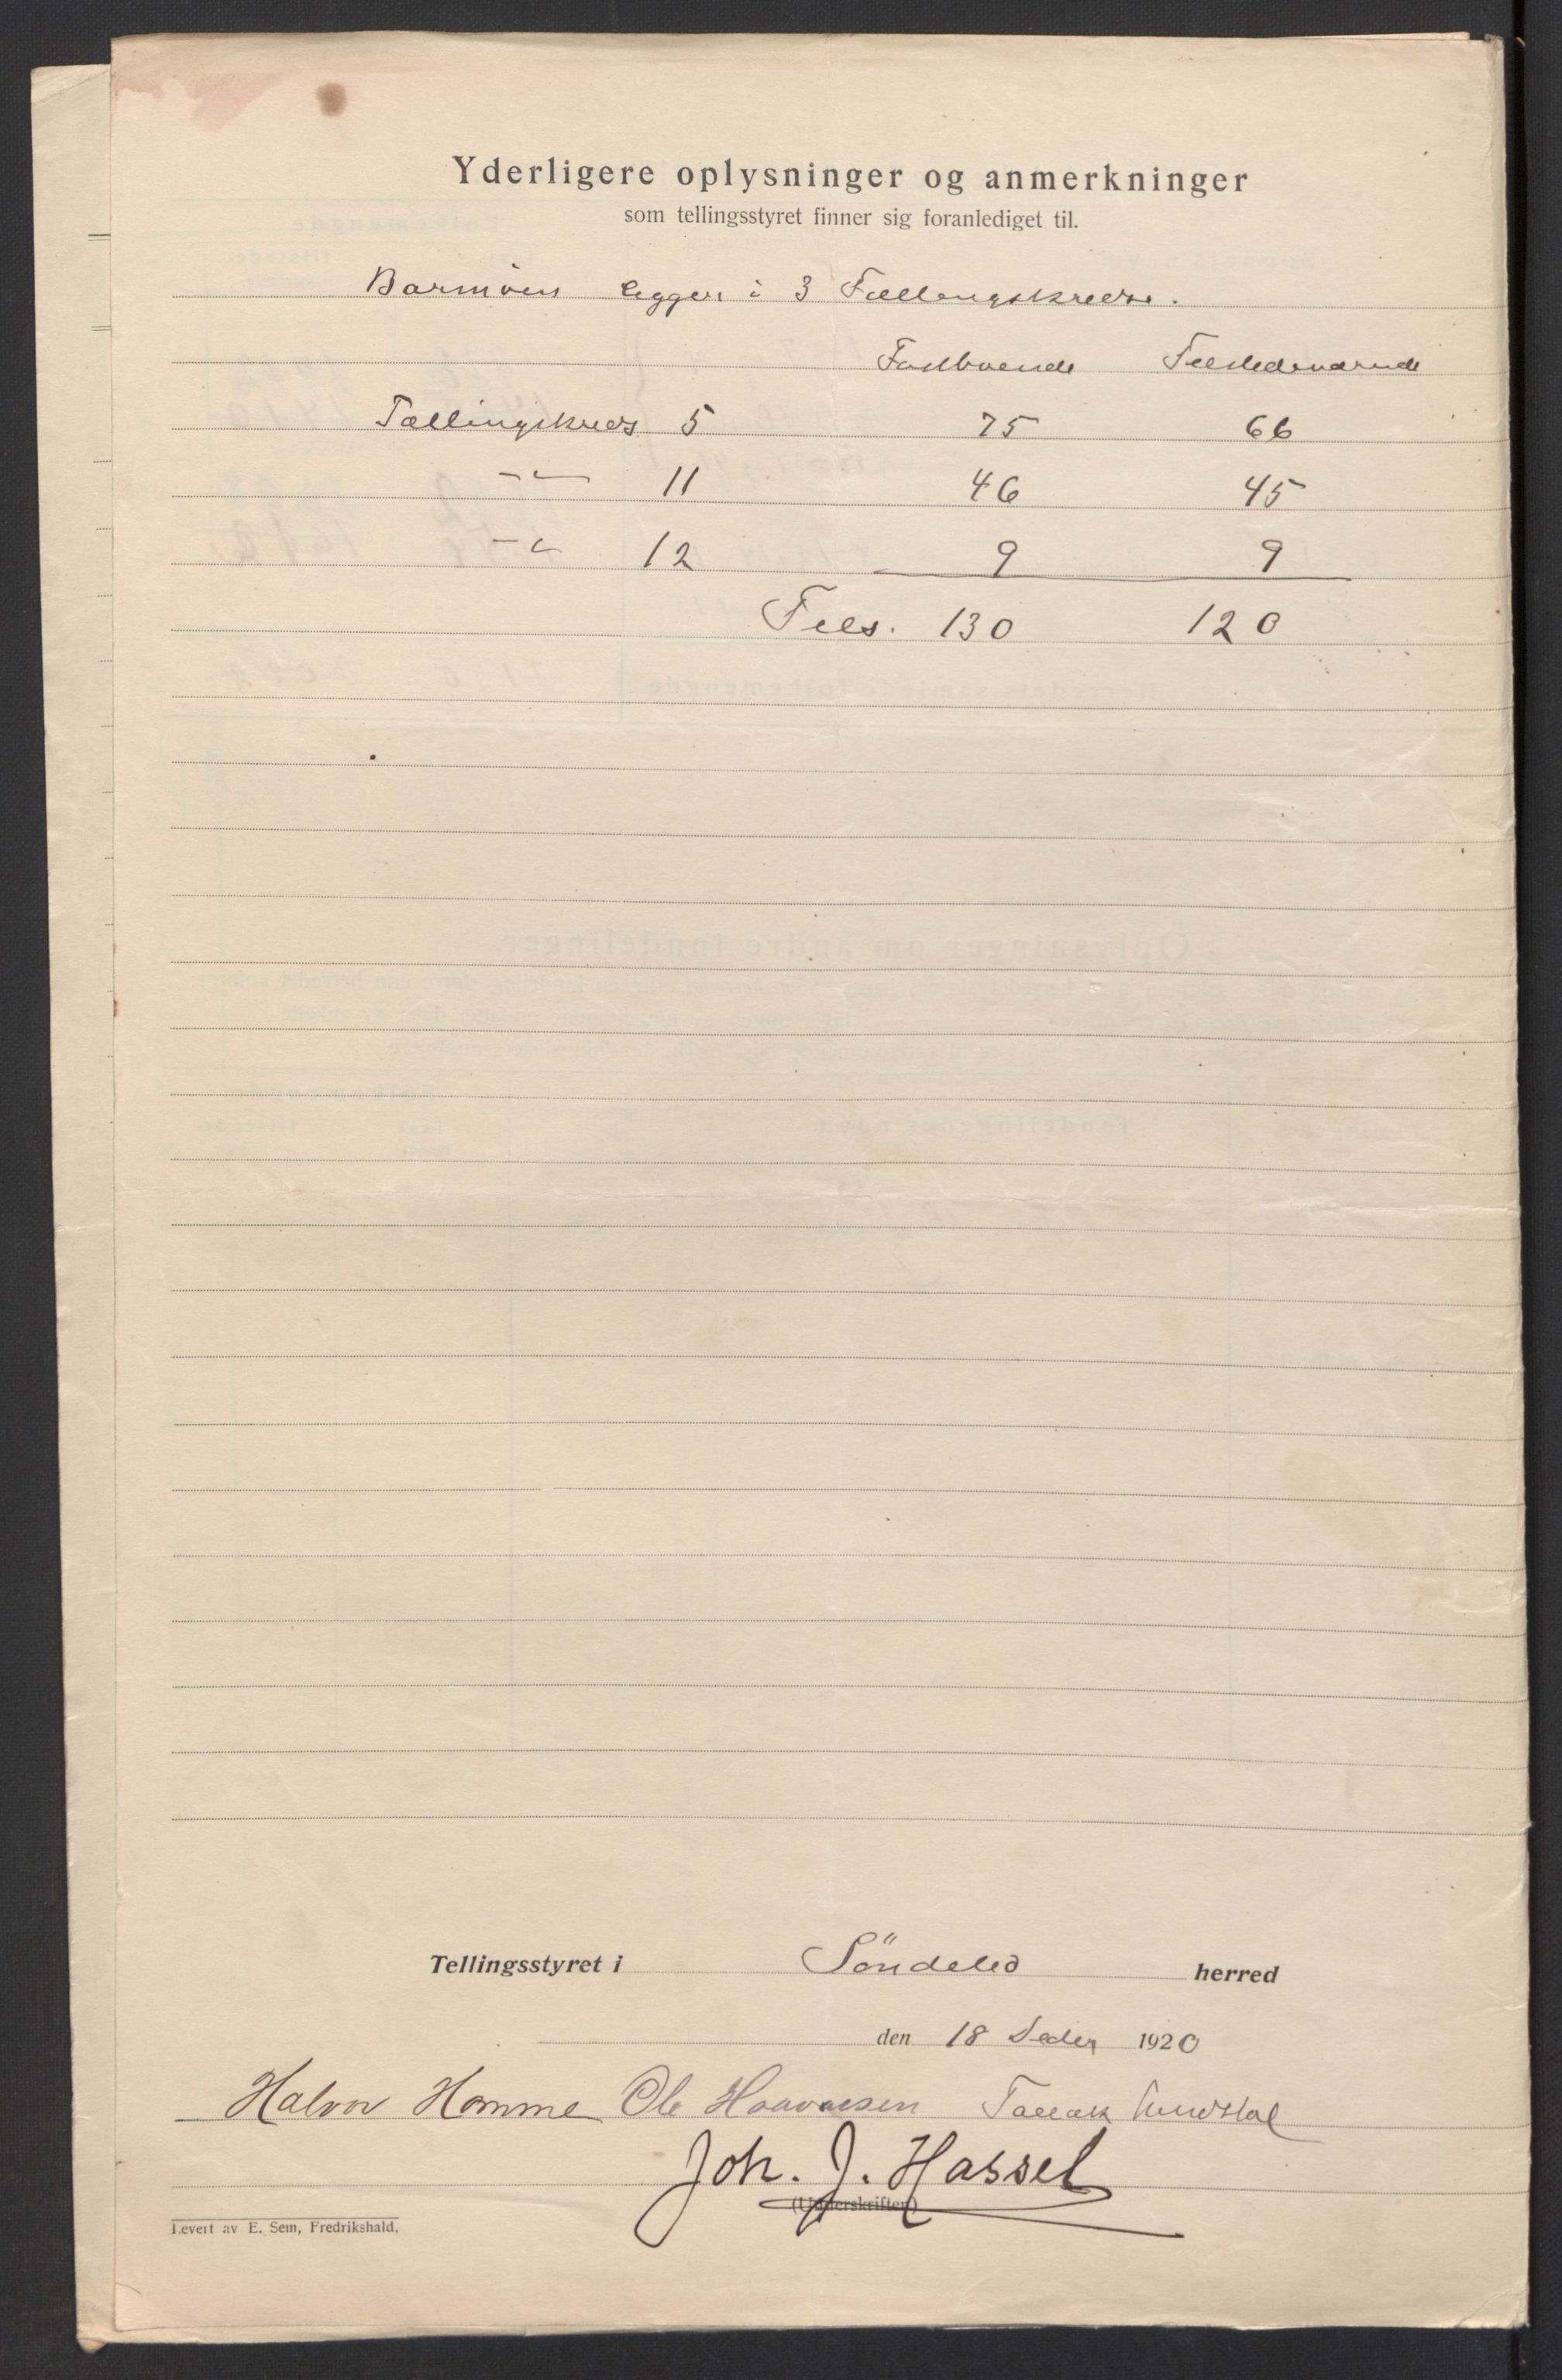 Yderligere oplysninger og anmerkninger
som tellingsstyret finner sig foranlediget til.
Barmöen ligger i 3 Tællingskredse.
Fastboende Tilstedeværende
Tællingskreds 5 75 66
-"- 11 46 45
-"- 12 9 9
Tils. 130 120
Tellingsstyret i Söndeled herred
den 18 Decbr 1920
Halvor Homme Ole Haavorsen
Joh. J. Hassel
(Underskrifter)
Levert av E. Sem, Fredrikshald.